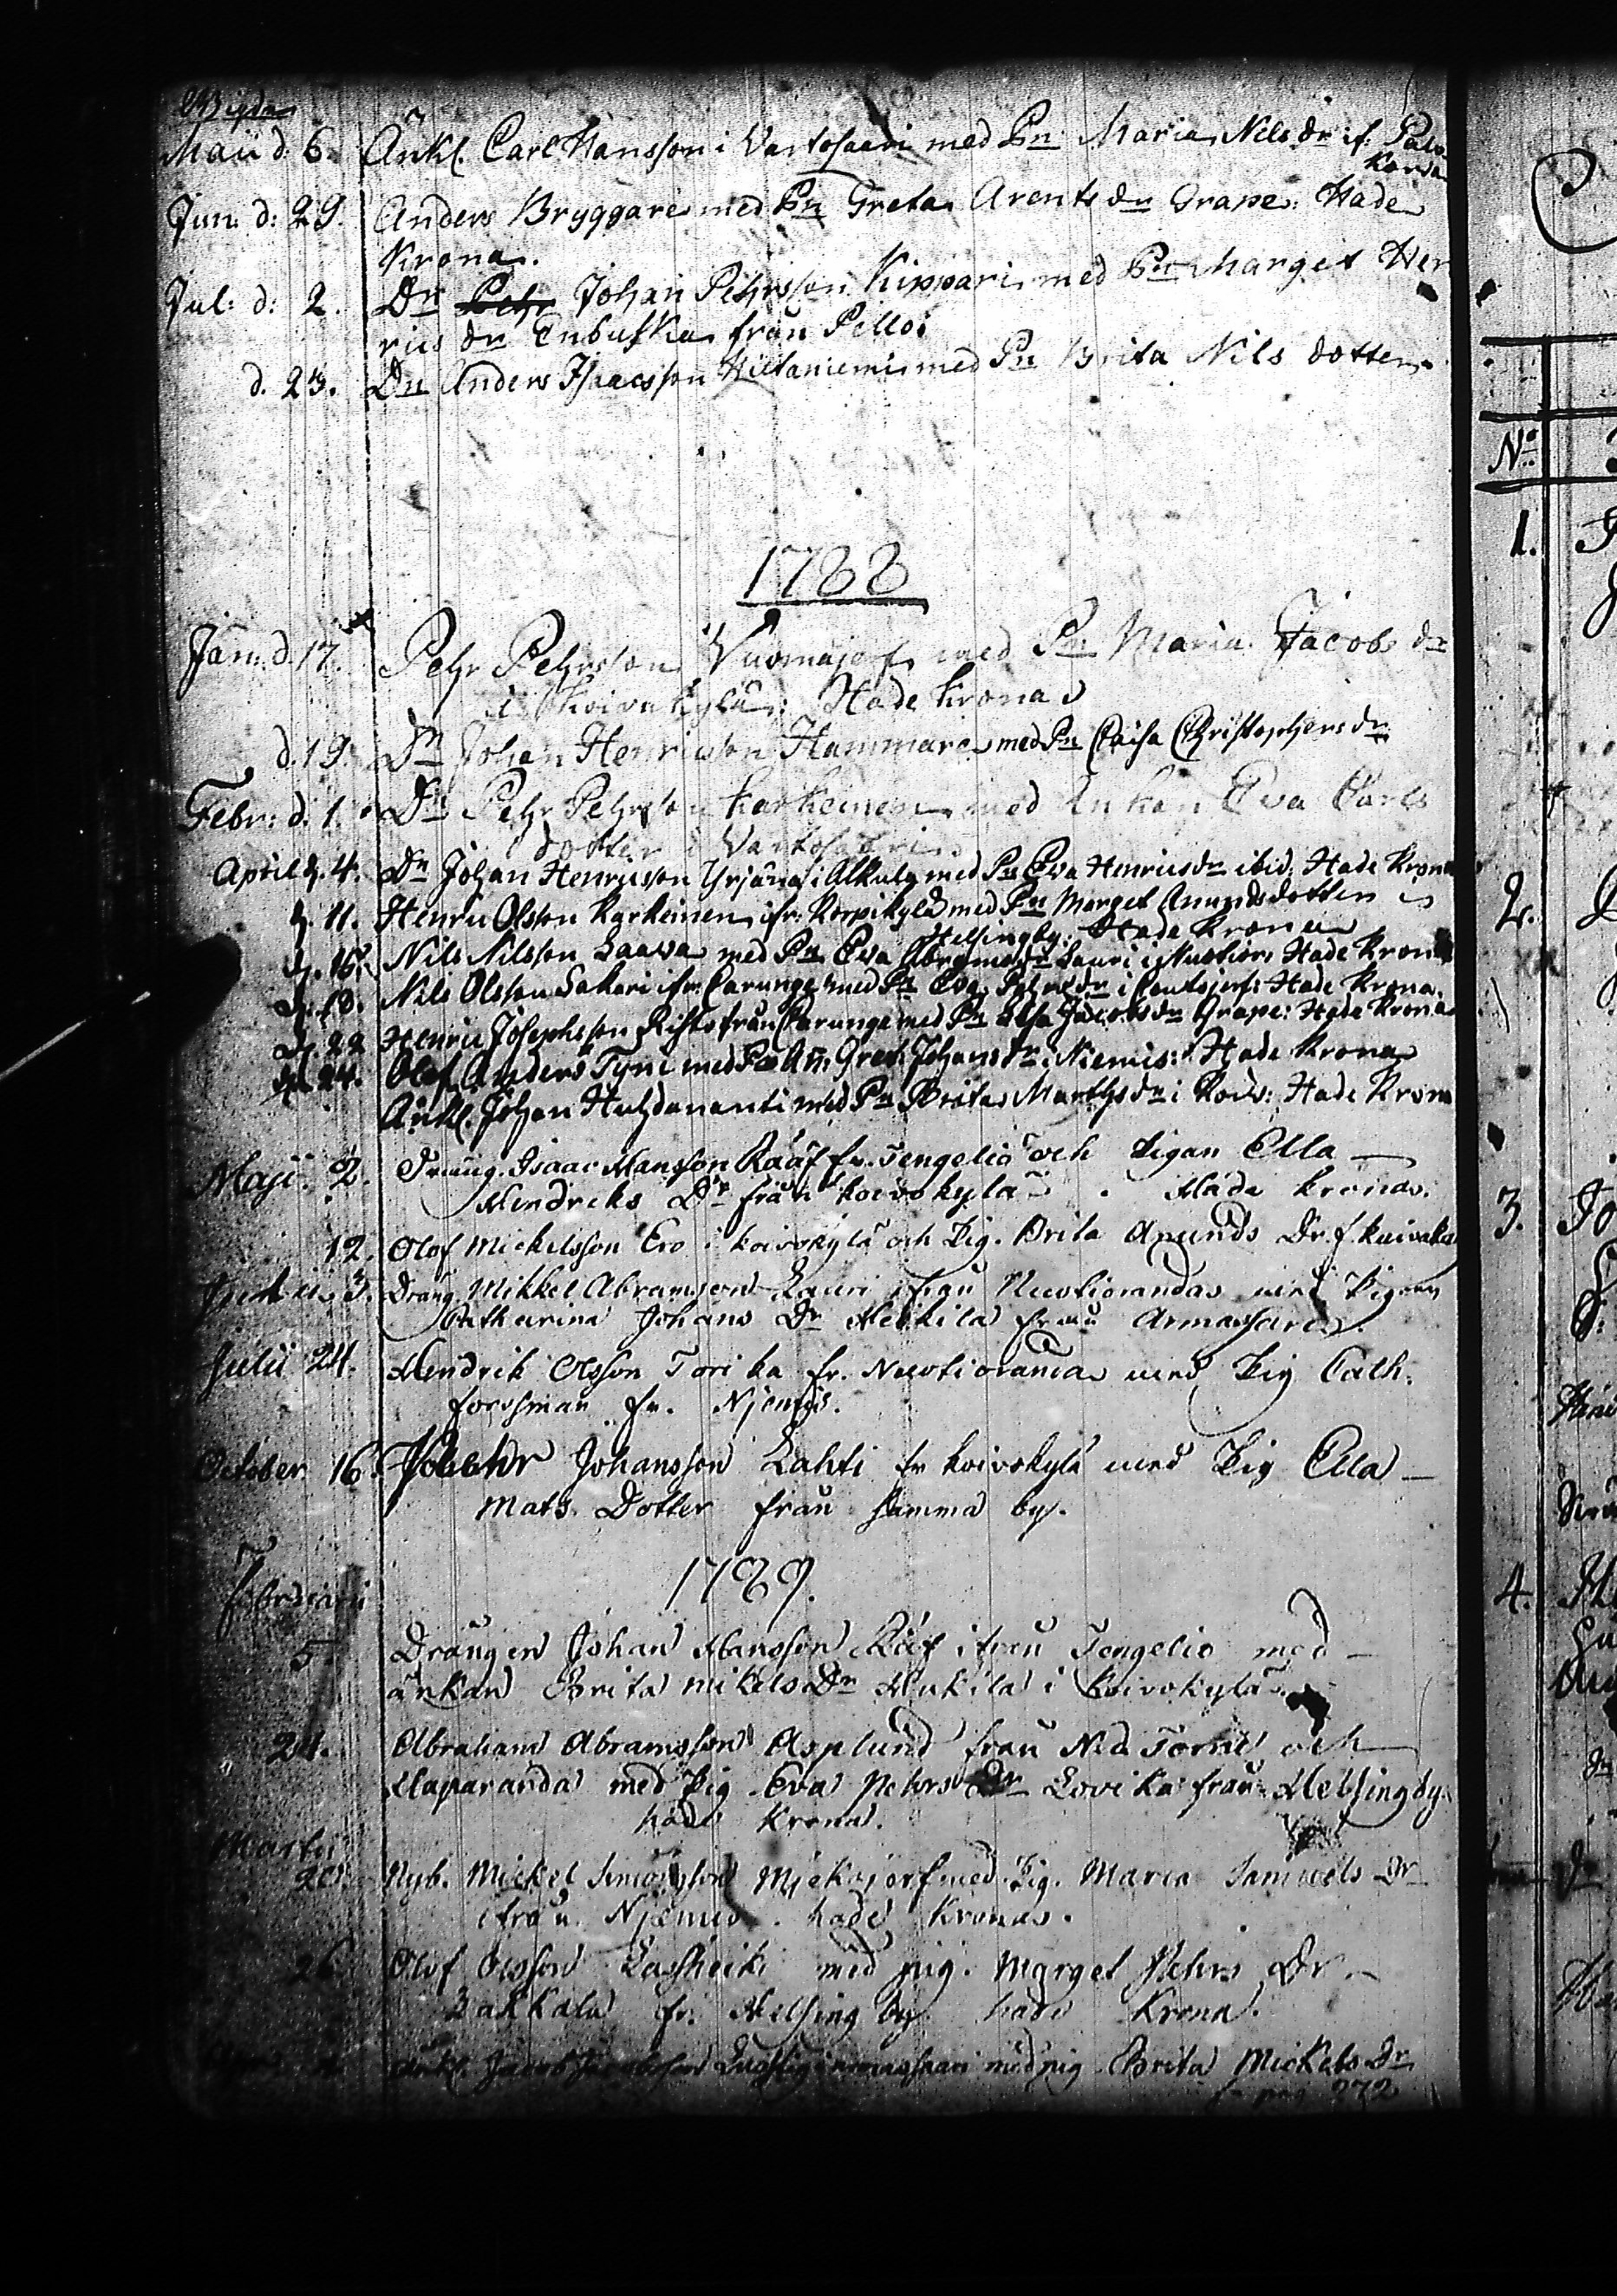 Wigda
Maii d. 6. Änkl. Carl Hansson i Vartosaari med Pn Maria Nils dr if. Palo
Korva
Jun: d: 29. Anders Bryggare med Pn Greta Arents dr Grape: Hade
Krona.
Jul: d: 2. Dn Pehr Johan Pehrsson Kippari med Pn Marget Hen
rics dr Enbuska från Pello:
d. 23. Dn Anders Isaacsson Hietaniemi med Pn Brita Nils dotter.
1788
Jan: d. 17. Pehr Pehrsson Vuomajerf med Pn Maria Jacobs dr
i Koivukylä: Hade Krona
d. 19. Dn Johan Henricsson Hammare med Pn Caisa Christophers dr
Febr: d. 1. Dn Pehr Pehrsson Karkeinen med Enkan Eva Carls
dotter i Vartosaari
April d. 4. Dn Johan Henricsson Yrjänä i Alkula med Pn Eva Henricsdr ibid: Hade Krona
d. 11. Henric Olsson Karkeinen ifr: Korpikylä med Pn Marget Anundsdotter i
Helsingby: Hade Krona
d. 16. Nils Nilsson Laava med Pn Eva Abramsdr Lauri i Nuotior: Hade Krona
d. 18. Nils Olsson Sakari ifr: Carunge med Pn Eva Pehrsdr i Pentäjerf: Hade Krona.
d. 22 Henric Josephsson Risto från Carunge med Pn Elsa Jacobsdr Grape: Hade Krona
d. 24. Olof Anders Tyni med Pn An: Gret: Johansdr: Niemis: Hade Krona
Änkl. Johan Huhdananti med Pn Brita Marthsdr i Rovs: Hade Krona
Maji. 2. Dräng. Isaac Hansson Rääf fr. Tengeliö och Pigan Ella
Hendriks Dr från Koivokylä. Hade krona.
12. Olof Mickelsson Ero i Koivokylä och Pig. Brita Anunds Dr. f. Kuivaka
Junii. 3. Dräng. Mikkel Abramsson Lauri ifrån Nuotioranda med Pigan
Catharina Johans Dr Heikilä från Armassari.
Julii 24. Hendrik Olsson Torika fr. Nuotioranda med Pig Cath.
Forssman fr. Njemis.
October 16. Johansson Lahti fr Koivokylä med Pig Ella
Mats Dotter från samma by.
1789.
Februarii
5 Drängen Johan Hansson Rääf ifrån Tengelio med
änkan Brita Mikels Dr Heikilä i Koivokylä.
24. Abraham Abramsson Asplund från Ned. Torne och
Haparanda med Pig Eva Pehrs Dr Lovika från Helsingby.
hade Krona.
Martii
20. Nyb. Mickel Simonsson Mjekojerf med Pig. Maria Samuels Dr
ifrån Njemis. hade Krona.
26. Olof Olsson Lassheiki med pig. Marget Pehrs Dr.
Zakkala fr. Helsing by. hade Krona.
Änkl. Jacob Jacobsson i Armassaari med pig Brita Mickels Dr
pag 272
Nº
1.
2.
3.
4.